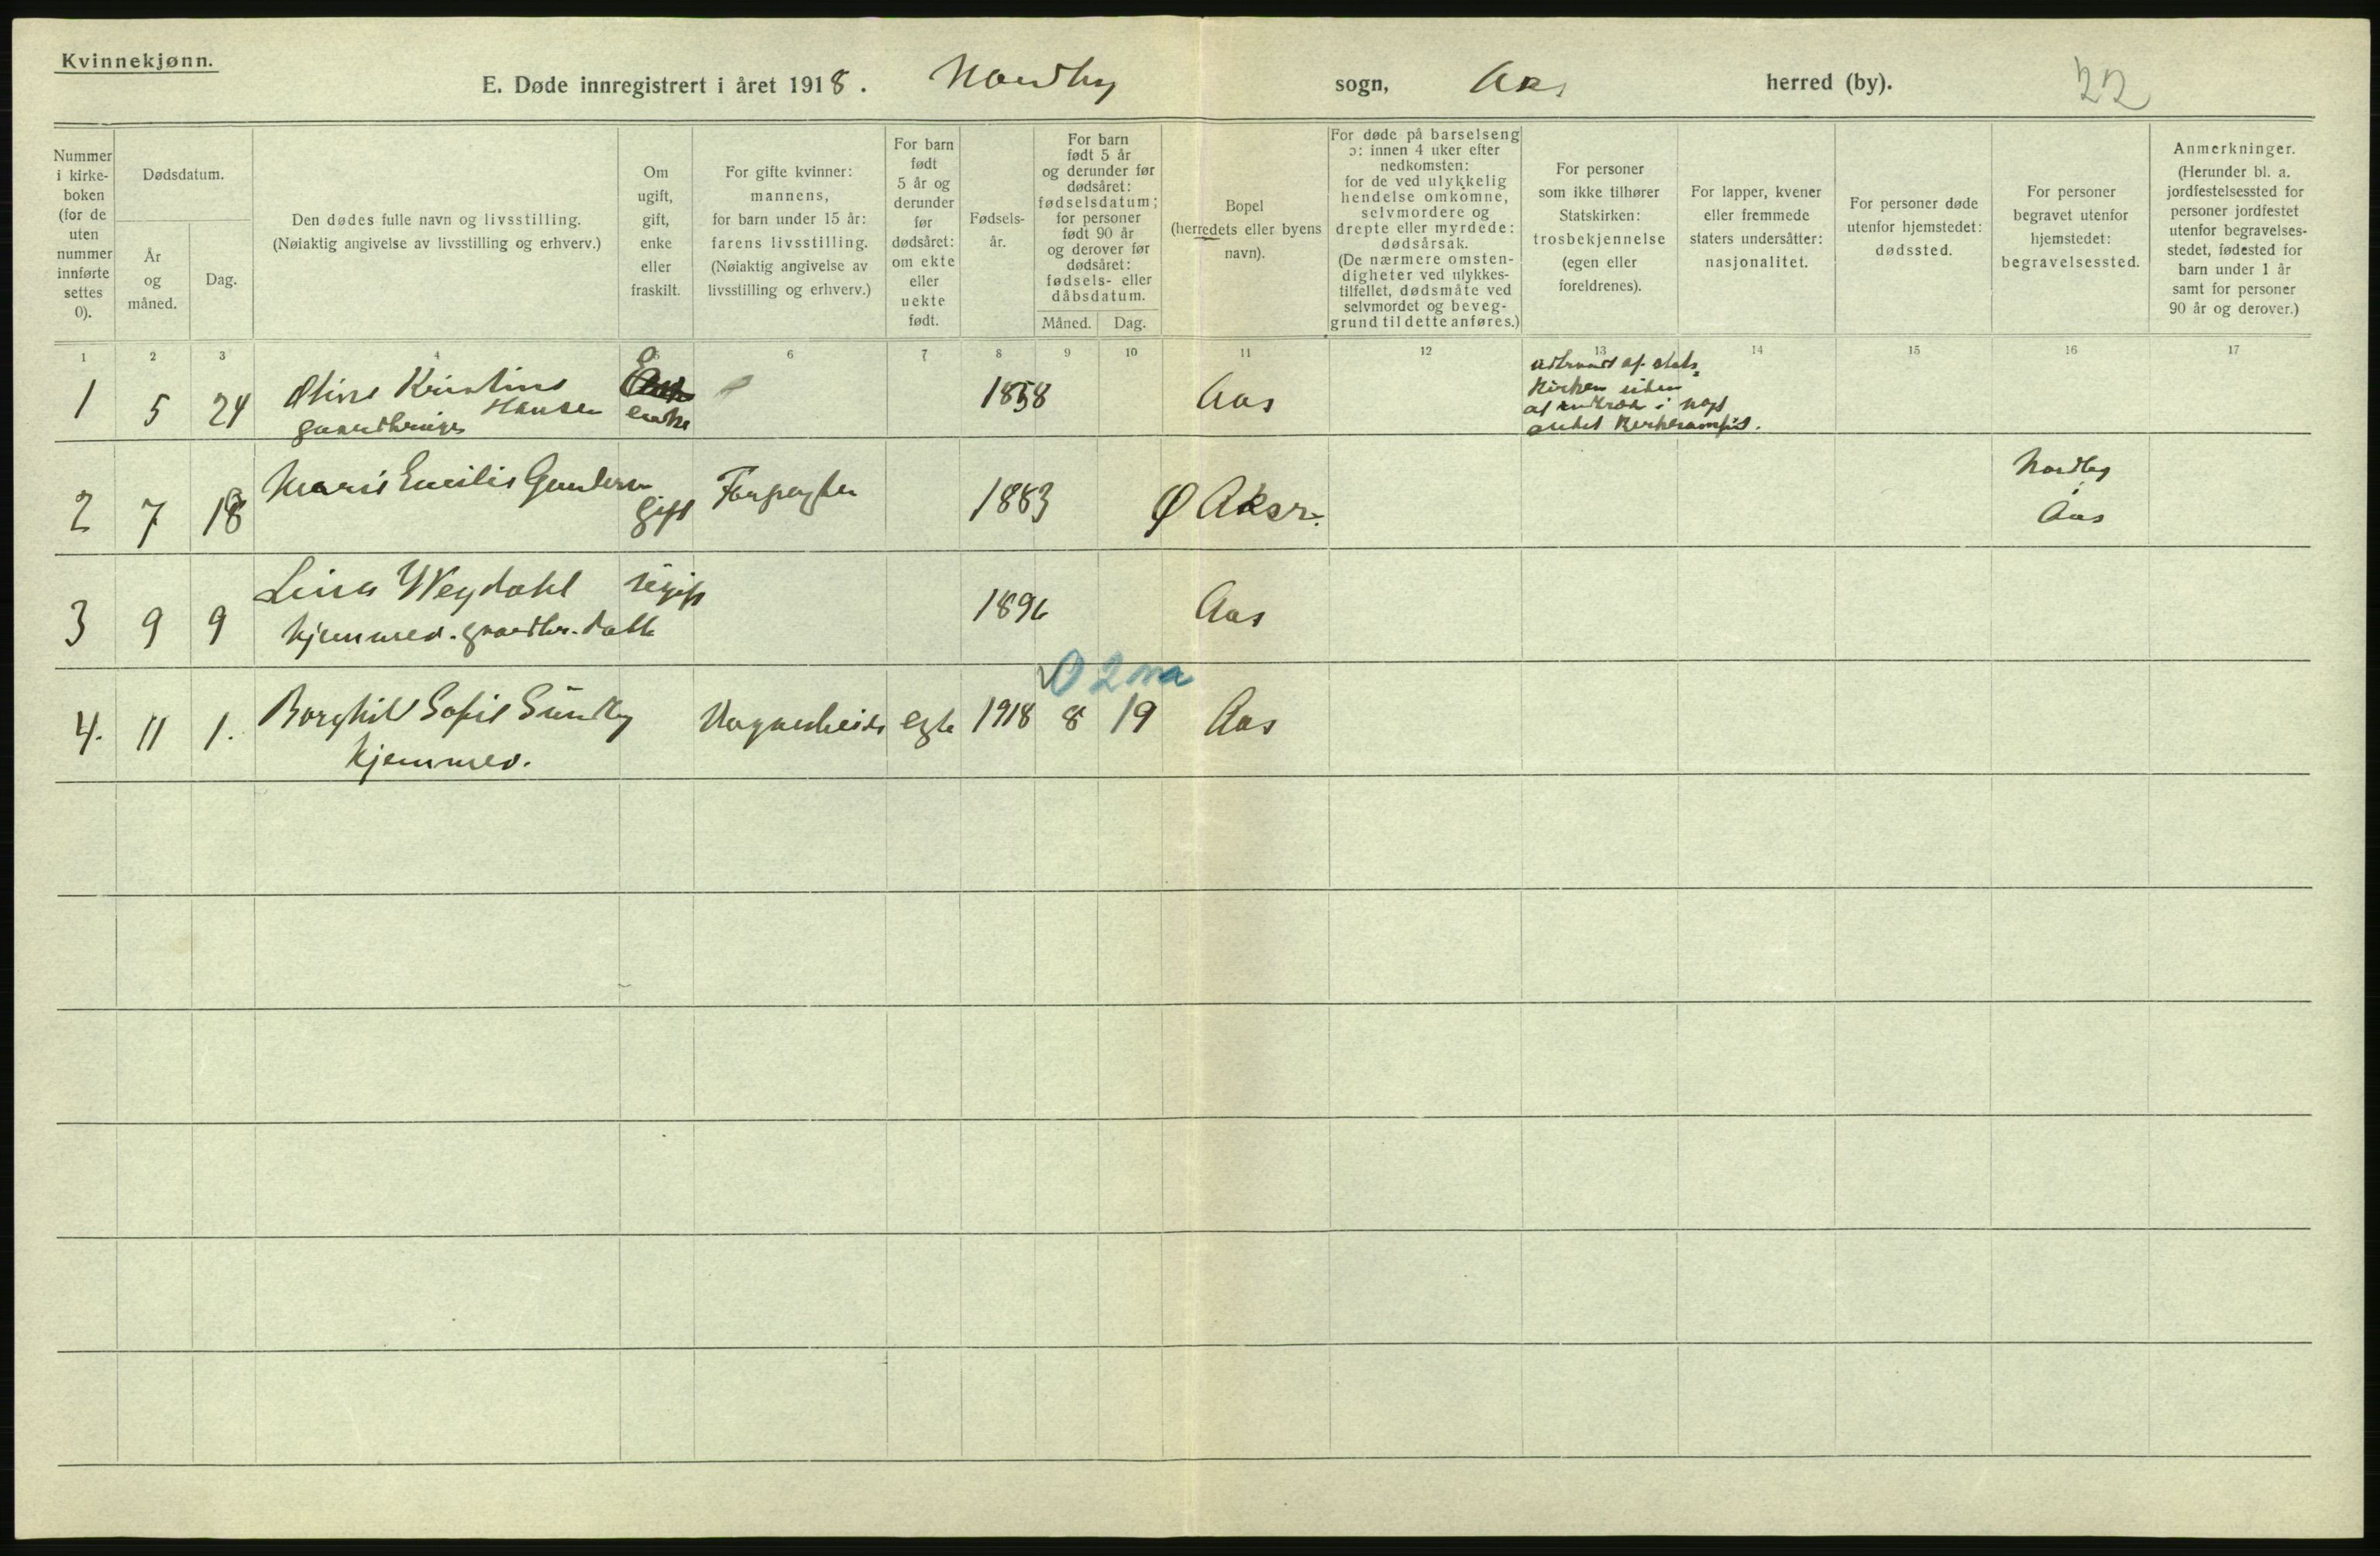 Kvinnekjønn.
E. Døde innregistrert i året 1918. Nordby sogn, Aas herred (by). 22
Nummer i kirke-boken (for de uten nummer innførte settes 0).
Dødsdatum.
År og måned.
Dag.
Den dødes fulle navn og livsstilling.
(Nøiaktig angivelse av livsstilling og erhverv.)
Om ugift, gift, enke eller fraskilt.
For gifte kvinner: mannens, for barn under 15 år: farens livsstilling. (Nøiaktig angivelse av livsstilling og erhverv.)
For barn født 5 år og derunder før dødsåret: om ekte eller uekte født.
Fødsels-år.
For barn født 5 år og derunder før dødsåret: fødselsdatum; for personer født 90 år og derover før dødsåret: fødsels- eller dåbsdatum.
Måned.
Dag.
Bopel (herredets eller byens navn).
For døde på barselseng ɔ: innen 4 uker efter nedkomsten: for de ved ulykkelig hendelse omkomne, selvmordere og drepte eller myrdede: dødsårsak. (De nærmere omsten-digheter ved ulykkes-tilfellet, dødsmåte ved selvmordet og beveg-grund til dette anføres.)
For personer som ikke tilhører Statskirken: trosbekjennelse (egen eller foreldrenes).
For lapper, kvener eller fremmede staters undersåtter: nasjonalitet.
For personer døde utenfor hjemstedet: dødssted.
For personer begravet utenfor hjemstedet: begravelsessted.
Anmerkninger. (Herunder bl. a. jordfestelsessted for personer jordfestet utenfor begravelses-stedet, fødested for barn under 1 år samt for personer 90 år og derover.)
1 2 3 4 5 6 7 8 9 10 11 12 13 14 15 16 17
1 5 24 Oline Kristine Hansen enke 1858 Aas
gaardbruger
udtraadt af stats
kirken uden
at indtræde i noget
andet kirkesamfd.
2 7 18 Marie Emilie Gundersen gift Forpagter 1883 Ø Aker.
Nordby
Aas
3 9 9 Lina Weydahl ugift 1896 Aas
hjemmev. gaardbr. datt
0 2 ma
4. 11 1. Borghild Sofie Sundby egte 1918 8 19 Aas
hjemmev.